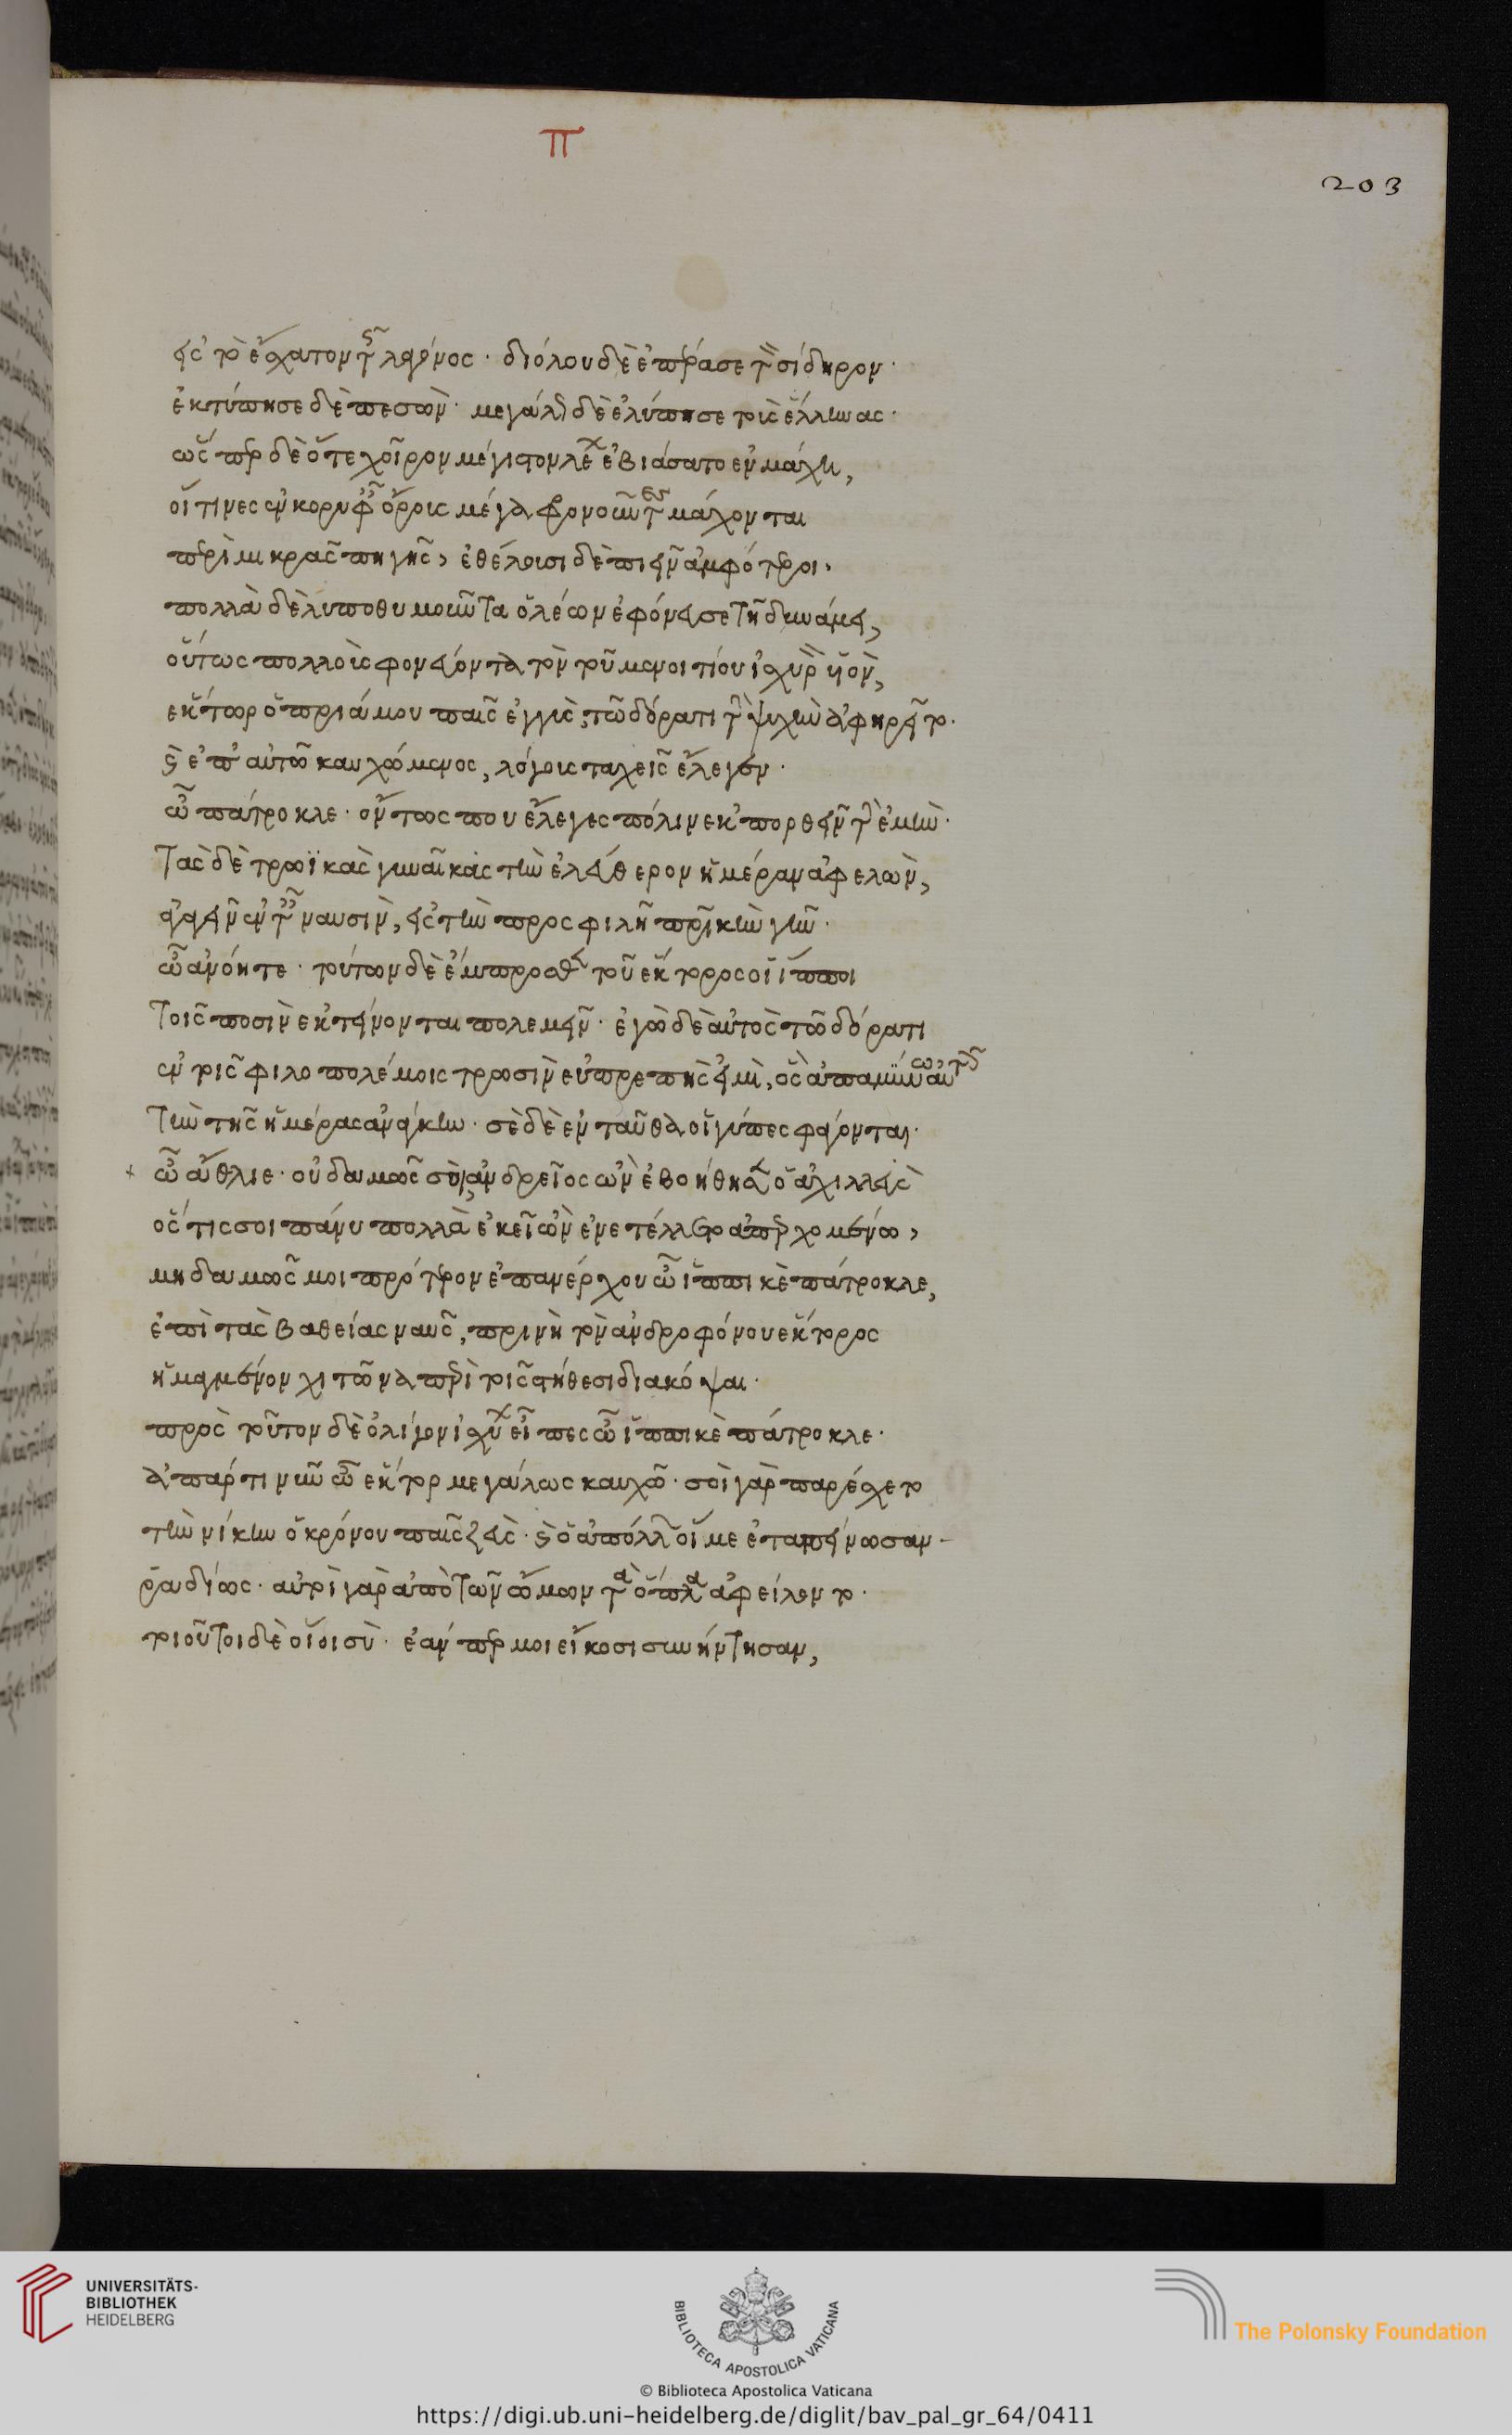 Π
203
εἰς τὸ ἔσχατον τῆς λαγόνος· διόλου δὲ ἐπέρασε τὸν σίδηρον·
ἐκτύπησε δὲ πεσών· μεγάλως δὲ ἐλύπησε τοὺς ἕλληνας·
ὥσπερ δὲ ὅτε χοῖρον μέγιστον λέων ἐβιάσατο ἐν μάχη,
οἵτινες ἐν κορυφαῖς ὄρους μέγα φρονοῦντες μάχονται
περὶ μικρᾶς πηγῆς, ἐθέλουσι δὲ πιεῖν ἀμφότεροι,
πολλὰ δὲ λυποθυμοῦντα ὁ λέων ἐφόνευσε τῆ δυνάμει,
οὕτως πολλοὺς φονεύοντα τὸν τοῦ μενοιτίου ἰσχυρὸν υἱὸν,
ἕκτωρ ὁ πριάμου παῖς ἐγγὺς τῶ δόρατι τὴν ψυχὴν ἀφηρεῖτο.
καὶ ἐπ' αὐτῶ καυχώμενος, λόγους ταχεῖς ἔλεγεν·
ὦ πάτροκλε· ὄντως που ἔλεγες πόλιν ἐκπορθεῖν τὴν ἐμὴν·
τὰς δὲ τρωϊκὰς γυναῖκας τὴν ἐλεύθερον ἡμέραν ἀφελὼν,
ἄγειν ἐν ταῖς ναυσὶν, εἰς τὴν προσφιλῆ πατρικὴν γῆν·
ὦ ἀνόητε· τούτων δὲ ἔμπροσθεν τοῦ ἕκτορος οἱ ἵπποι
τοῖς ποσὶν ἐκτείνονται πολεμεῖν· ἐγὼ δὲ αὐτὸς τῶ δόρατι
ἐν τοῖς φιλοπολέμοις τρωσὶν εὐπρεπής εἰμι, ὃς ἀπαμύνω αὐτοῖς
τὴν τῆς ἡμέρας ἀνάγκην· σὲ δὲ ἐνταῦθα οἱ γύπες φάγονται·
ὦ ἄθλιε· οὐδαμῶς σὺ ἀνδρεῖος ὢν ἐβοήθησεν ὁ ἀχιλλεὺς
ὅς τίς σοι πάνυ πολλὰ ἐκεῖ ὢν ἐνετέλλετο ἀπερχομένω,
μηδαμῶς μοι πρότερον ἐπανέρχου ὦ ἱππικὲ πάτροκλε,
ἐπὶ τὰς βαθείας ναῦς, πρινὴ τὸν ἀνδροφόνου ἕκτορος
ἡμαγμένον χιτῶνα περὶ τοῖς στήθεσι διακόψαι·
πρὸς τοῦτον δὲ ὀλίγον ἰσχύων εἶπες ὦ ἱππικὲ πάτροκλε·
ἀπάρτι νῦν ὦ ἕκτορ μεγάλως καυχῶ· σοὶ γὰρ παρέσχετο
τὴν νίκην ὁ κρόνου παῖς ζεὺς· καὶ ὁ ἀπόλλων οἵ με ἐταπείνωσαν
ῥαδίως· αὐτοὶ γὰρ ἀπὸ τῶν ὤμων τὰ ὅπλα ἀφείλεντο·
τοιοῦτοι δὲ οἷοι σὺ· ἐάν περ μοι εἴκοσι συνήντησαν,
UNIVERSITÄTS-
BIBLIOTHEK
HEIDELBERG
BIBLIOTECA APOSTOLICA VATICANA
The Polonsky Foundation
© Biblioteca Apostolica Vaticana
https://digi.ub.uni-heidelberg.de/diglit/bav_pal_gr_64/0411